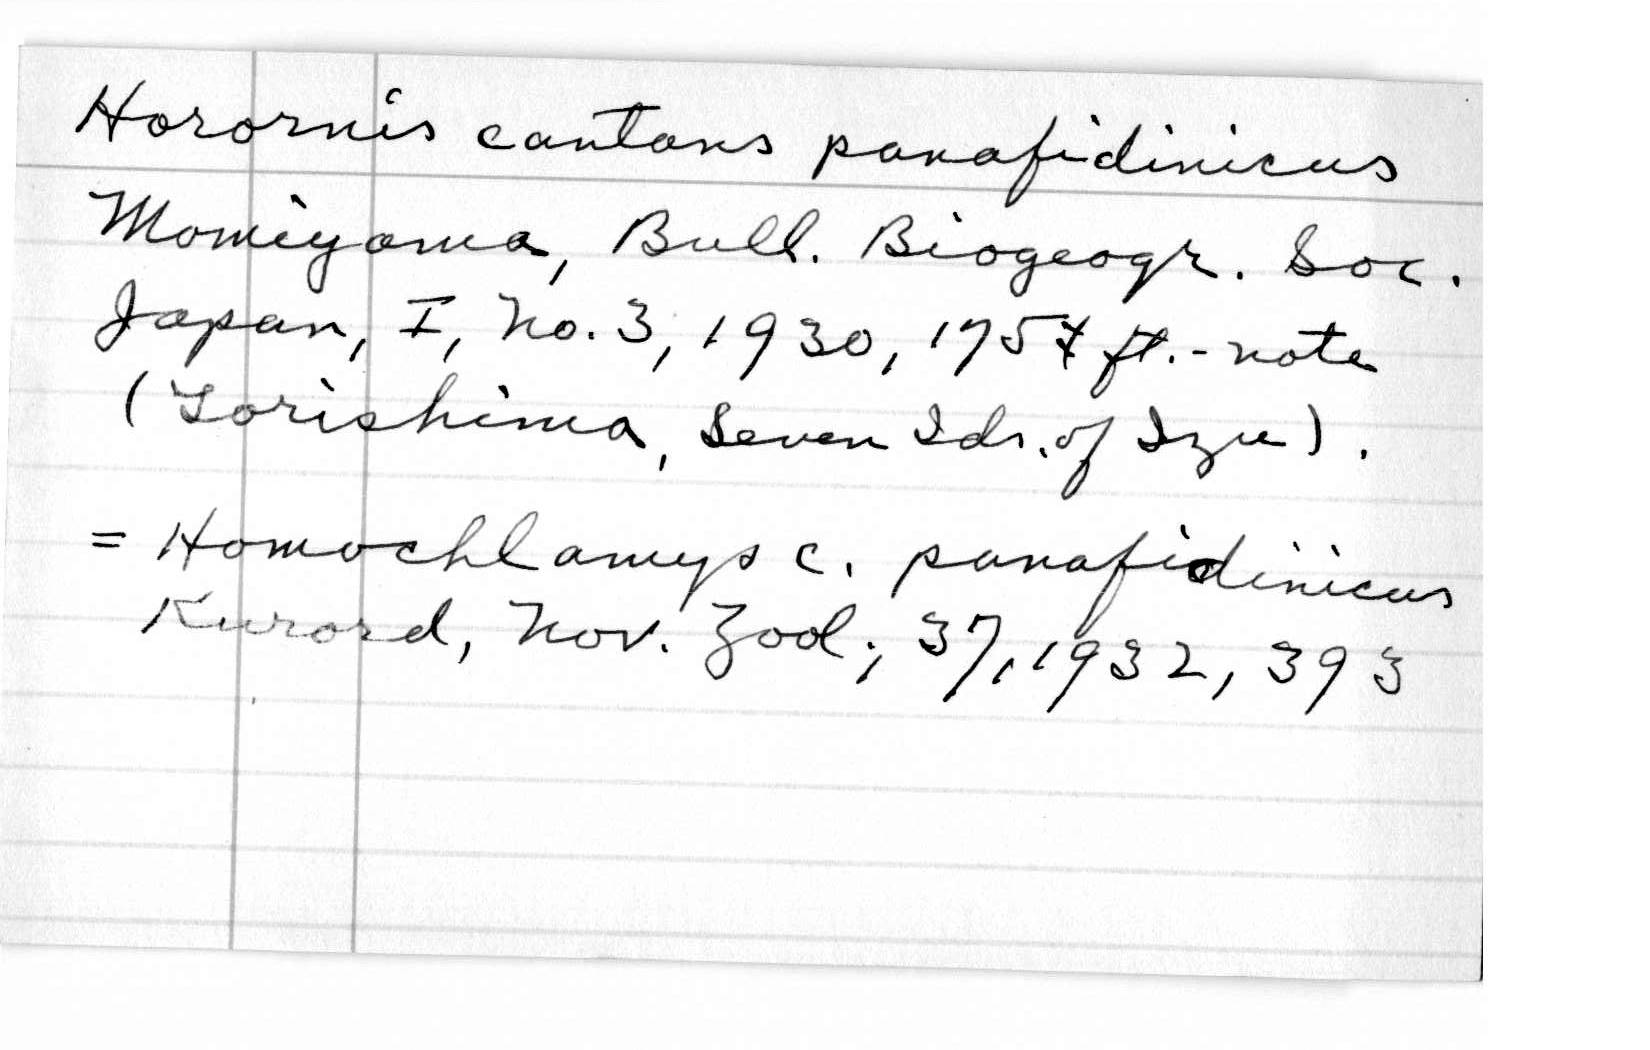 Horornis cantans panafidinicus
Momiyama, Bull. Biogeogr. Soc.
Japan, I, No. 3, 1930, 175 & ft.-note
(Torishima, Seven Ids. of Izu).
= Homochlamys c. panafidinicus
Kurord, Nov. Zool., 37, 1932, 393